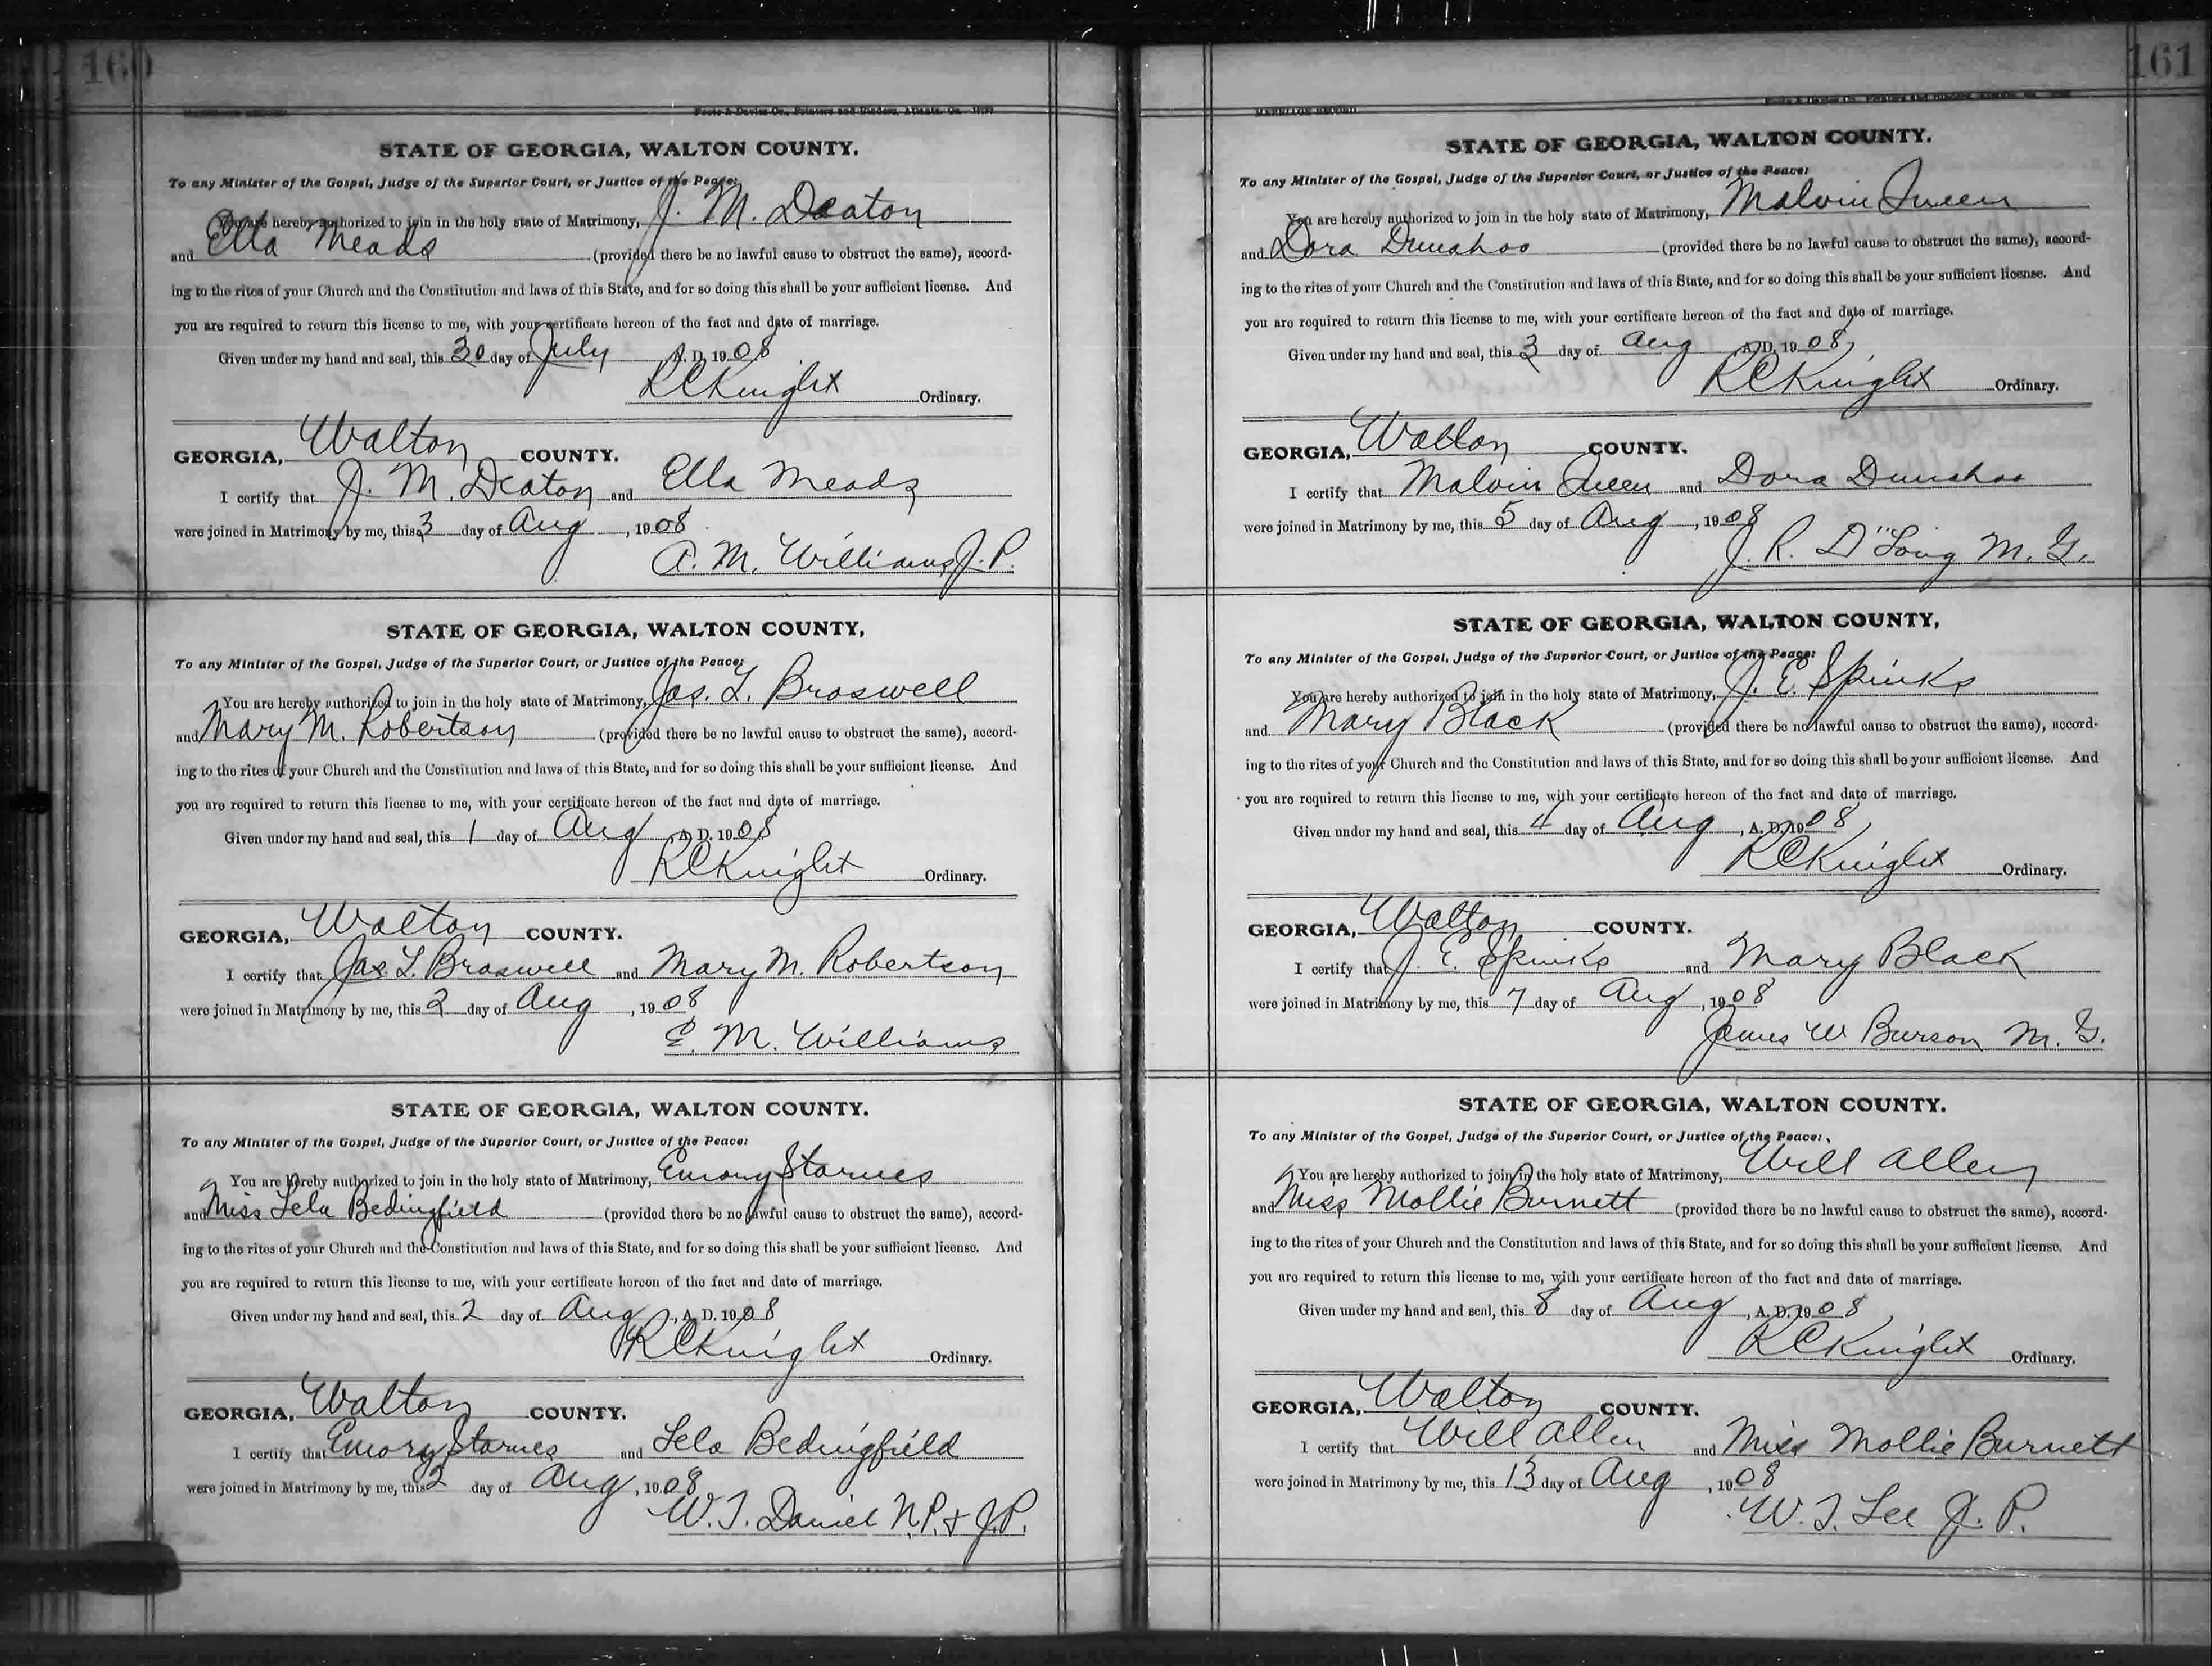 160
Foote & Davies Co., Printers and Binders, Atlanta, Ga.
STATE OF GEORGIA, WALTON COUNTY.
To any Minister of the Gospel, Judge of the Superior Court, or Justice of the Peace:
You are hereby authorized to join in the holy state of Matrimony, J. M. Deaton
and Ella Meads (provided there be no lawful cause to obstruct the same), accord-
ing to the rites of your Church and the Constitution and laws of this State, and for so doing this shall be your sufficient license. And
you are required to return this license to me, with your certificate hereon of the fact and date of marriage.
Given under my hand and seal, this 30 day of July, A. D. 1908
R C Knight Ordinary.
GEORGIA, Walton COUNTY.
I certify that J. M. Deaton and Ella Meads
were joined in Matrimony by me, this 3 day of Aug, 1908
A. M. Williams J. P.
STATE OF GEORGIA, WALTON COUNTY,
To any Minister of the Gospel, Judge of the Superior Court, or Justice of the Peace:
You are hereby authorized to join in the holy state of Matrimony, Jas. L. Braswell
and Mary M. Robertson (provided there be no lawful cause to obstruct the same), accord-
ing to the rites of your Church and the Constitution and laws of this State, and for so doing this shall be your sufficient license. And
you are required to return this license to me, with your certificate hereon of the fact and date of marriage.
Given under my hand and seal, this 1 day of Aug, A. D. 1908
R C Knight Ordinary.
GEORGIA, Walton COUNTY.
I certify that Jas L. Braswell and Mary M. Robertson
were joined in Matrimony by me, this 2 day of Aug, 1908
E. M. Williams
STATE OF GEORGIA, WALTON COUNTY.
To any Minister of the Gospel, Judge of the Superior Court, or Justice of the Peace:
You are hereby authorized to join in the holy state of Matrimony, Emory Starnes
and Miss Lela Bedingfield (provided there be no lawful cause to obstruct the same), accord-
ing to the rites of your Church and the Constitution and laws of this State, and for so doing this shall be your sufficient license. And
you are required to return this license to me, with your certificate hereon of the fact and date of marriage.
Given under my hand and seal, this 2 day of Aug, A. D. 1908
R C Knight Ordinary.
GEORGIA, Walton COUNTY.
I certify that Emory Starnes and Lela Bedingfield
were joined in Matrimony by me, this 2 day of Aug, 1908
W. T. Daniel N.P. & J.P.
161
MARRIAGE RECORD
STATE OF GEORGIA, WALTON COUNTY.
To any Minister of the Gospel, Judge of the Superior Court, or Justice of the Peace:
You are hereby authorized to join in the holy state of Matrimony, Malvin Queen
and Dora Dunahoo (provided there be no lawful cause to obstruct the same), accord-
ing to the rites of your Church and the Constitution and laws of this State, and for so doing this shall be your sufficient license. And
you are required to return this license to me, with your certificate hereon of the fact and date of marriage.
Given under my hand and seal, this 3 day of Aug, A. D. 1908
R C Knight Ordinary.
GEORGIA, Walton COUNTY.
I certify that Malvin Queen and Dora Dunahoo
were joined in Matrimony by me, this 5 day of Aug, 1908
J. R. D"Long M. G.
STATE OF GEORGIA, WALTON COUNTY,
To any Minister of the Gospel, Judge of the Superior Court, or Justice of the Peace:
You are hereby authorized to join in the holy state of Matrimony, J. E. Spinks
and Mary Black (provided there be no lawful cause to obstruct the same), accord-
ing to the rites of your Church and the Constitution and laws of this State, and for so doing this shall be your sufficient license. And
you are required to return this license to me, with your certificate hereon of the fact and date of marriage.
Given under my hand and seal, this 4 day of Aug, A. D. 1908
R C Knight Ordinary.
GEORGIA, Walton COUNTY.
I certify that J. E. Spinks and Mary Black
were joined in Matrimony by me, this 7 day of Aug, 1908
James W Burson M. G.
STATE OF GEORGIA, WALTON COUNTY.
To any Minister of the Gospel, Judge of the Superior Court, or Justice of the Peace:
You are hereby authorized to join in the holy state of Matrimony, Will Allen
and Miss Mollie Burnett (provided there be no lawful cause to obstruct the same), accord-
ing to the rites of your Church and the Constitution and laws of this State, and for so doing this shall be your sufficient license. And
you are required to return this license to me, with your certificate hereon of the fact and date of marriage.
Given under my hand and seal, this 8 day of Aug, A. D. 1908
R C Knight Ordinary.
GEORGIA, Walton COUNTY.
I certify that Will Allen and Miss Mollie Burnett
were joined in Matrimony by me, this 13 day of Aug, 1908
W. T. Lee J. P.